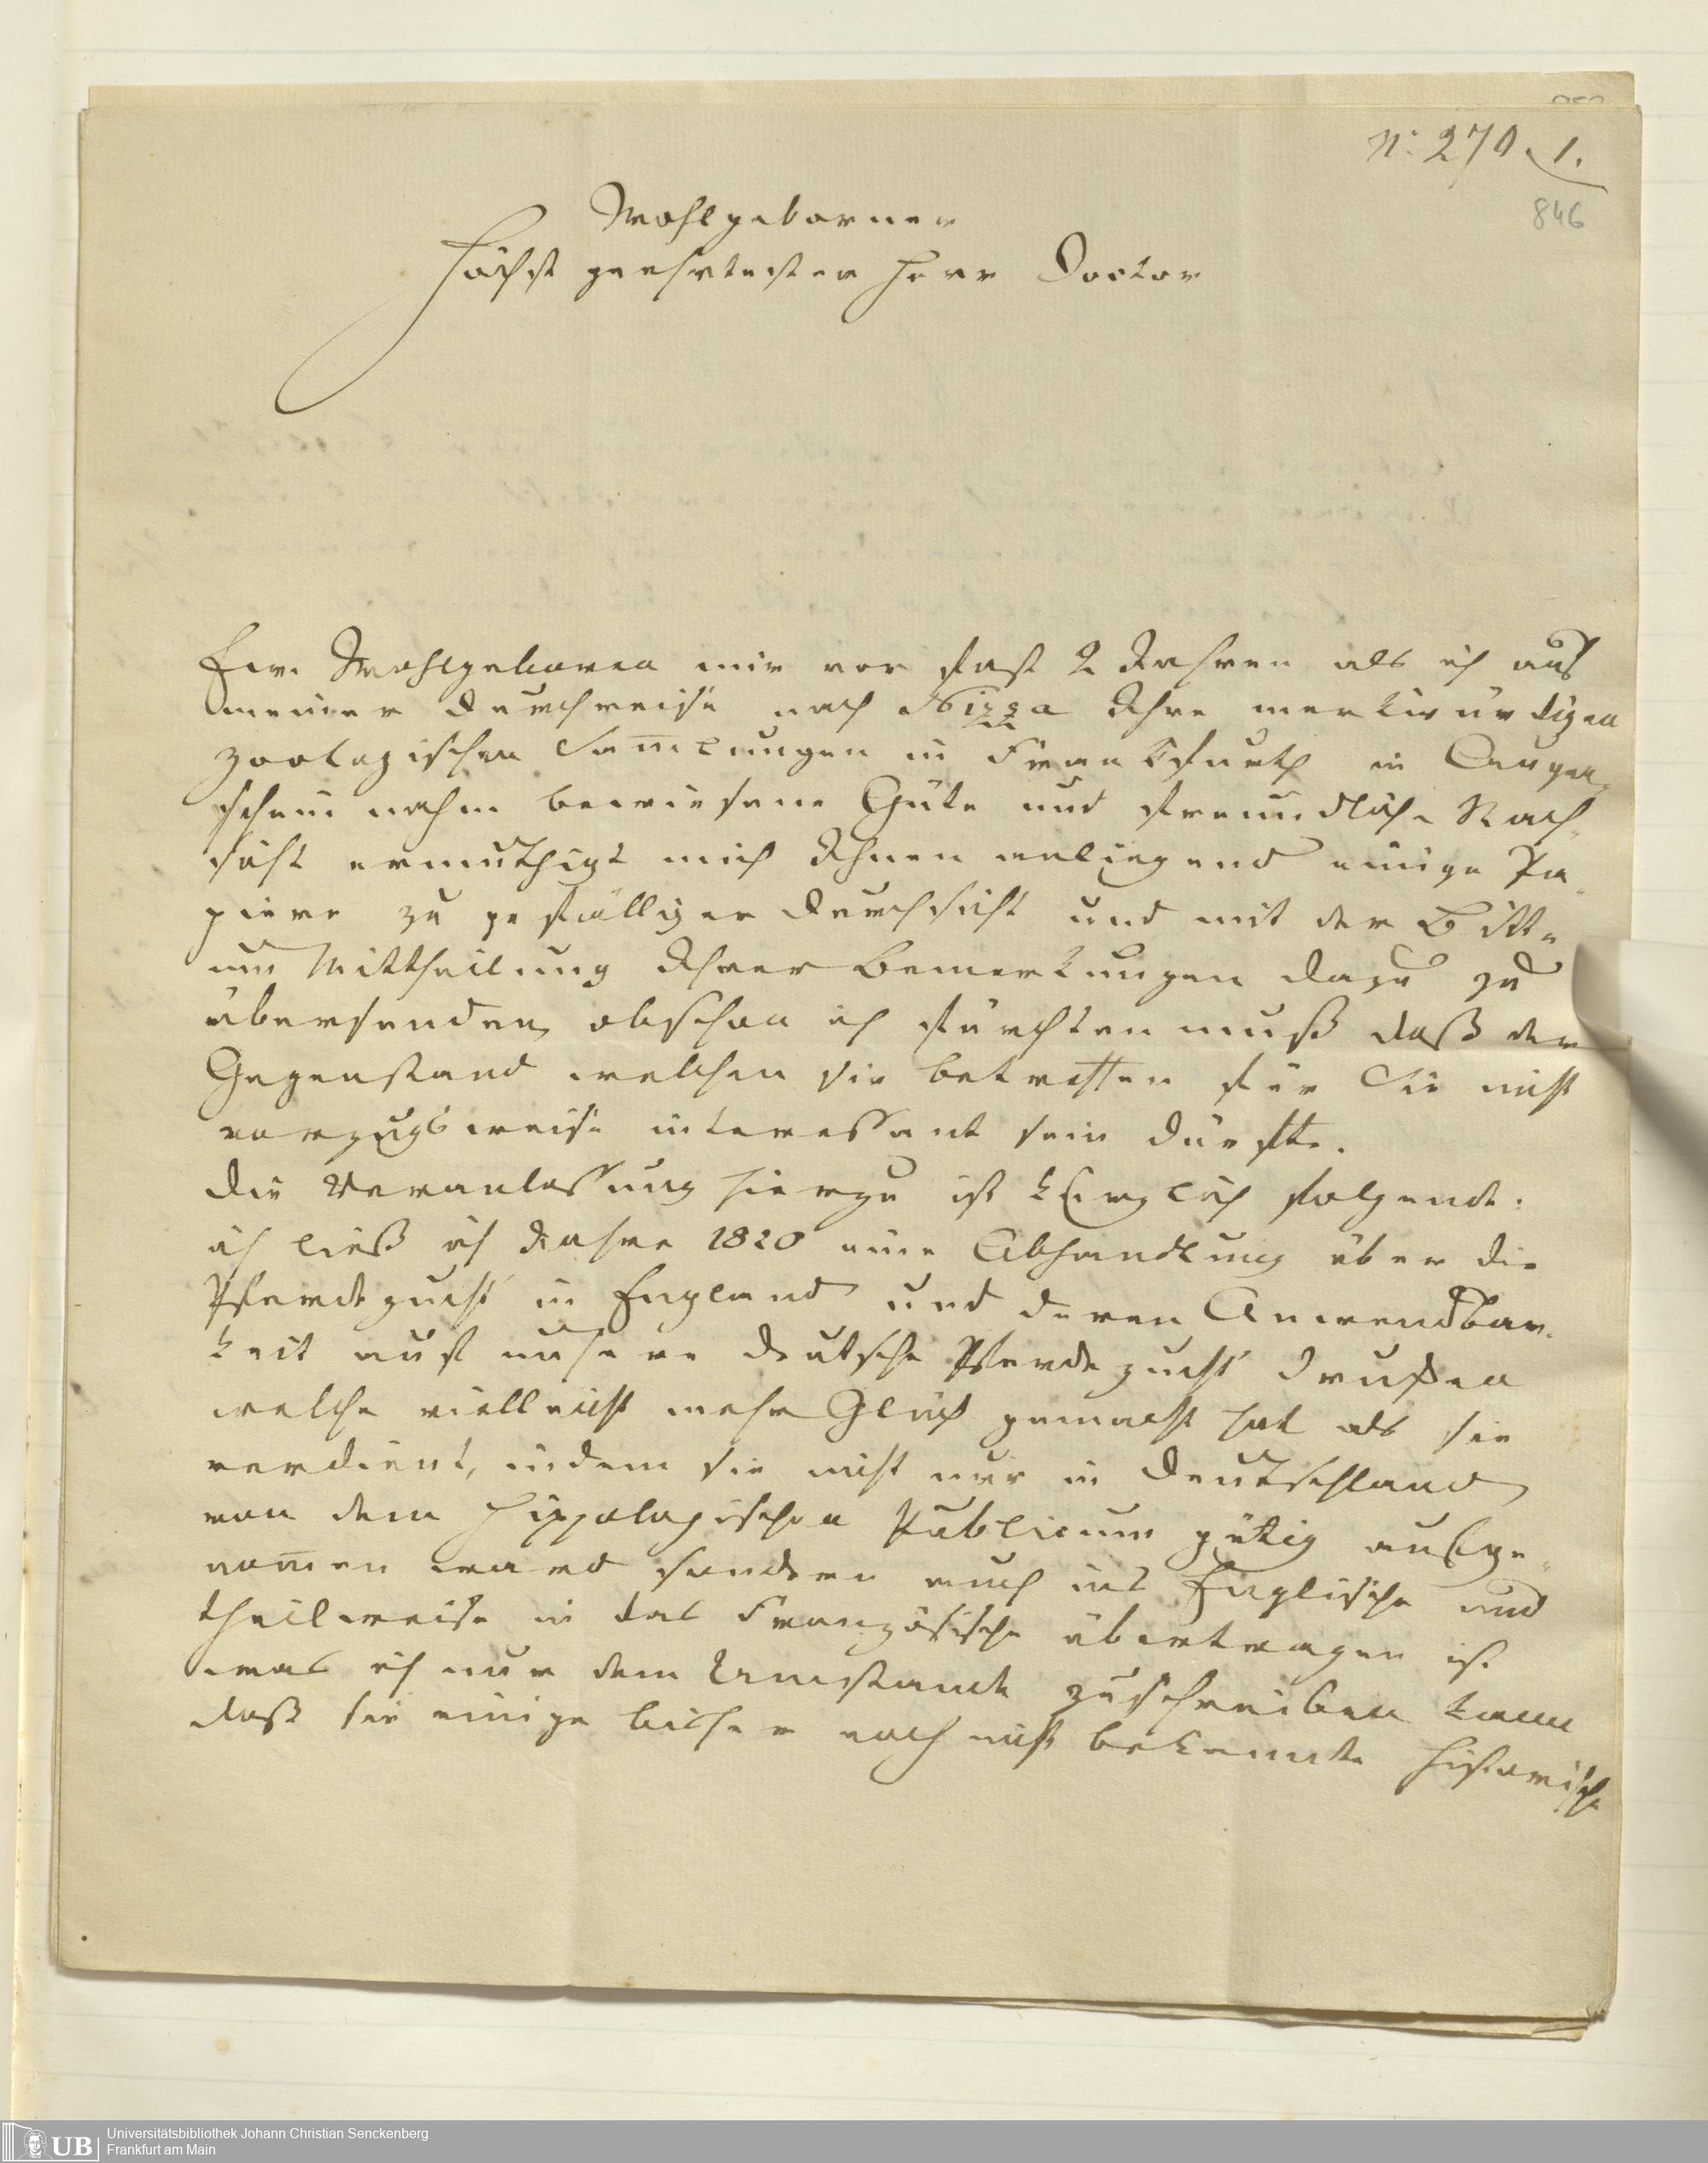 No: 270. 1.
846
Wohlgeborner
Höchst geehrtester Herr Doctor
Ew. Wohlgeboren mir vor fast 2 Jahren als ich auf
meiner Durchreise nach Nizza Ihre merkwürdigen
zoologischen Sam̄lungen in Frankfurth in Augen
schein nahm bewiesene Güte und freundliche Nach-
sicht ermuthigt mich Ihnen anliegend einige Pa-
piere zu gefälliger Durchsicht und mit der Bitte
um Mittheilung Ihrer Bemerkungen dazu zu
übersenden, obschon ich fürchten muß daß der
Gegenstand welchen sie betreffen für Sie nicht
vorzugsweise interessant sein dürfte.
Die Veranlassung hierzu ist kürzlich folgende:
ich ließ ich Jahre 1820 eine Abhandlung über die
Pferdezucht in England und deren Anwendbar-
keit auf unsere deutsche Pferdezucht drucken
welche vielleicht mehr Glück gemacht hat als sie
verdient, indem sie nicht nur in Deutschland
von dem hippologischen Publicum gütig aufge-
nom̄en ward sondern auch ins Englische und
theilweise in das Französische übertragen ist
was ich nur dem Umstande zuschreiben kann
daß sie einige bisher noch nicht bekannte historische
Universitätsbibliothek Johann Christian Senckenberg
UB Frankfurt am Main